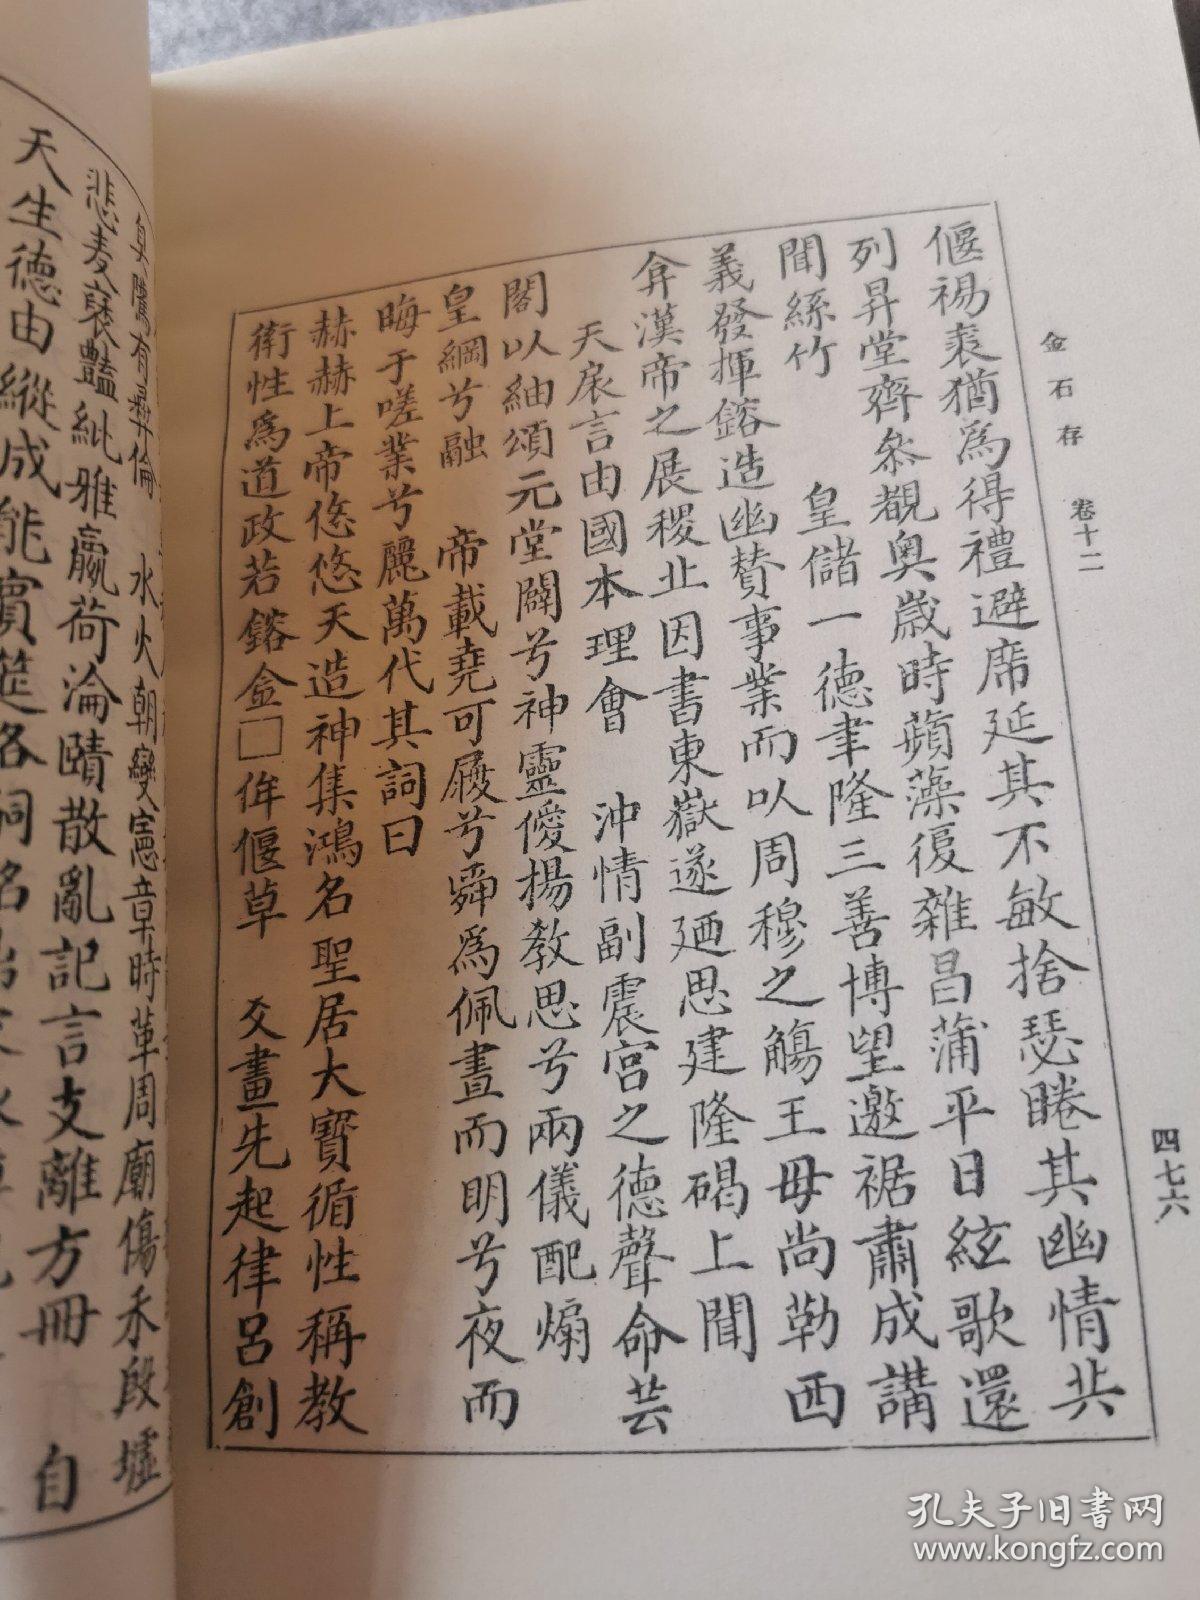 金石存 卷十二
四七六
偃裼裘猶爲得禮避席延其不敏捨瑟睠其幽情共
列昇堂齊叅覩奥歲時蘋藻復雜昌蒲平日絃歌還
聞絲竹 皇儲一德聿隆三善博望邀裾肅成講
義發揮鎔造幽賛事業而以周穆之觴王母尚勒西
弇漢帝之展稷止因書東嶽遂廼思建隆碣上聞
天扆言由國本理會 沖情副震宮之德聲命芸
閣以紬頌元堂闢兮神靈優揚教思兮兩儀配煽
皇綱兮融 帝載堯可履兮舜爲佩晝而明兮夜而
晦于嗟業兮麗萬代其詞曰
赫赫上帝悠悠天造神集鴻名聖居大寶循性稱教
衛性爲道政若鎔金□侔偃草 爻畫先起律呂創
有彝倫 水火朝變憲章時革周廟傷禾殷墟
悲麦襃豔紕雅嬴荷淪賾散亂記言支離方冊 自
天生德由縱成能實